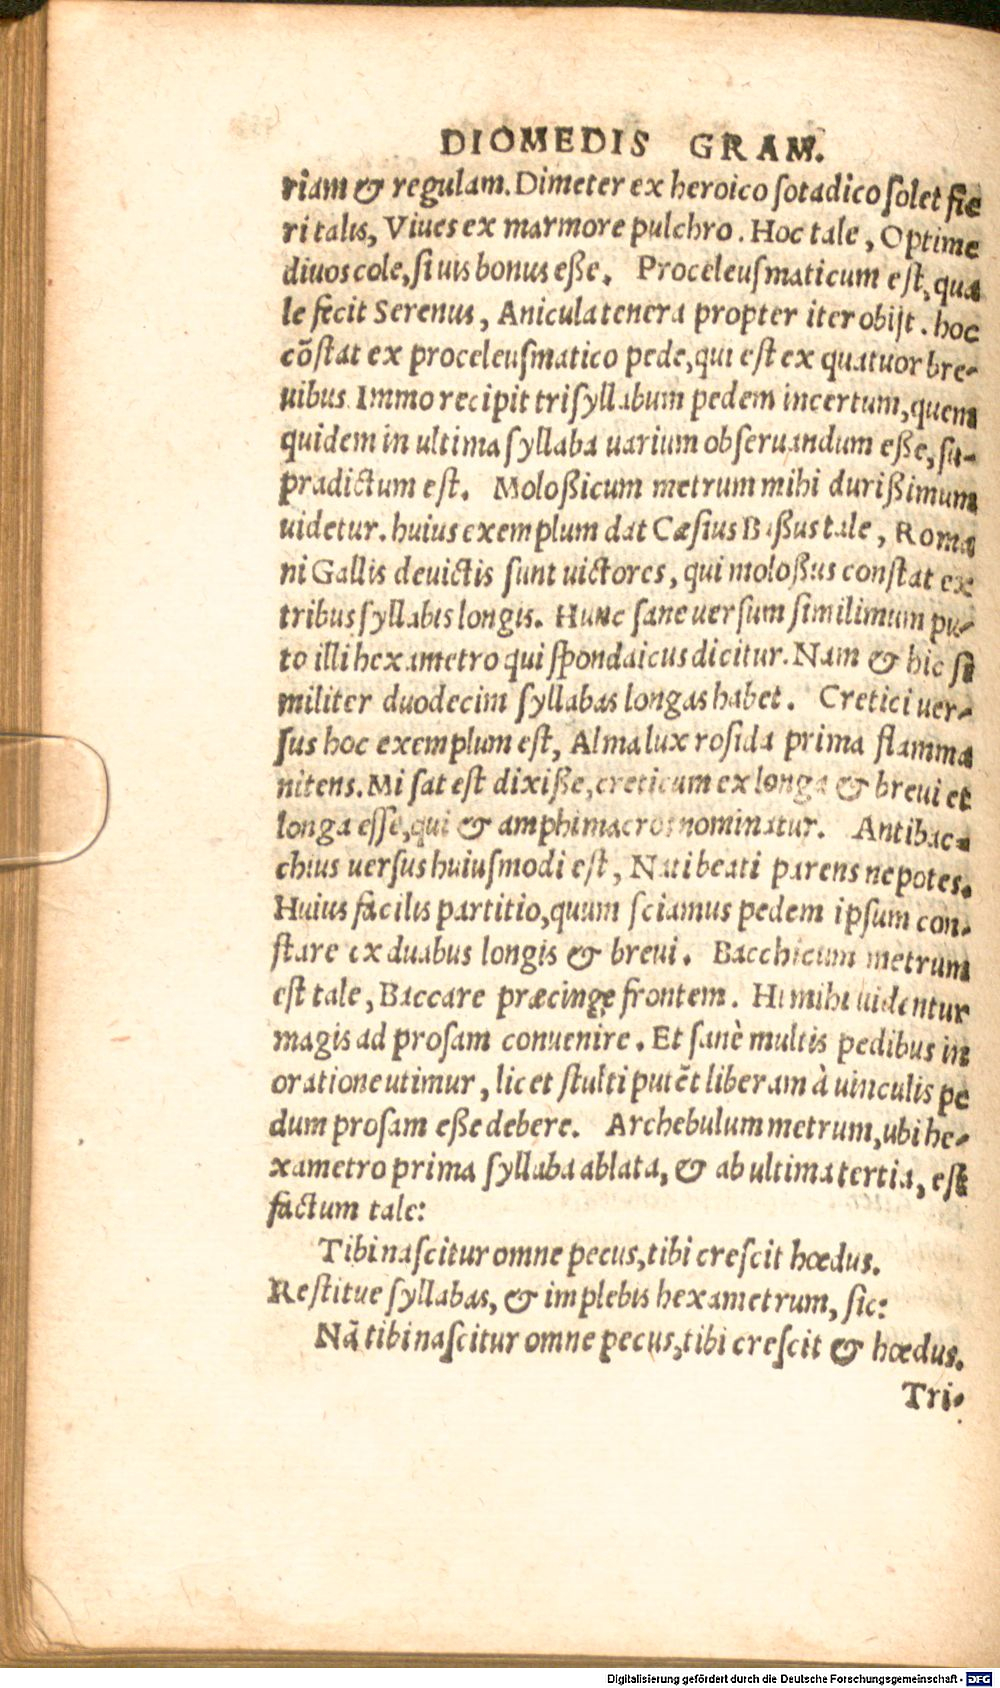 DIOMEDIS GRAM.
riam & regulam. Dimeter ex heroico ſotadico ſolet fie
ri talis, Viues ex marmore pulchro. Hoc tale, Optime
diuos cole, ſi uis bonus eße. Proceleuſmaticum eſt, qua
le fecit Serenus, Anicula tenera propter iter obijt. hoc
cõſtat ex proceleuſmatico pede, qui eſt ex quatuor bre-
uibus. Immo recipit triſyllabum pedem incertum, quem
quidem in ultima ſyllaba uarium obſeruandum eße, ſu-
pradictum eſt. Moloßicum metrum mihi durißimum
uidetur. huius exemplum dat Cæſius Baßus tale, Roma
ni Gallis deuictis ſunt uictores, qui moloßus conſtat ex
tribus ſyllabis longis. Hunc ſane uerſum ſimilimum pu-
to illi hexametro qui ſpondaicus dicitur. Nam & hic ſi
militer duodecim ſyllabas longas habet. Cretici uer-
ſus hoc exemplum eſt, Alma lux roſida prima flamma
nitens. Mi ſat eſt dixiße, creticum ex longa & breui et
longa eſſe, qui & amphimacros nominatur. Antibac-
chius uerſus huiuſmodi eſt, Nati beati parens nepotes.
Huius facilis partitio, quum ſciamus pedem ipſum con-
ſtare ex duabus longis & breui. Bacchicum metrum
eſt tale, Baccare præcinge frontem. Hi mihi uidentur
magis ad proſam conuenire. Et ſanè multis pedibus in
oratione utimur, licet ſtulti putẽt liberam à uinculis pe
dum proſam eße debere. Archebulum metrum, ubi he-
xametro prima ſyllaba ablata, & ab ultima tertia, eſt
factum tale:
Tibi naſcitur omne pecus, tibi creſcit hœdus.
Reſtitue ſyllabas, & implebis hexametrum, ſic:
Nã tibi naſcitur omne pecus, tibi creſcit & hœdus.
Tri-
Digitalisierung gefördert durch die Deutsche Forschungsgemeinschaft - DFG